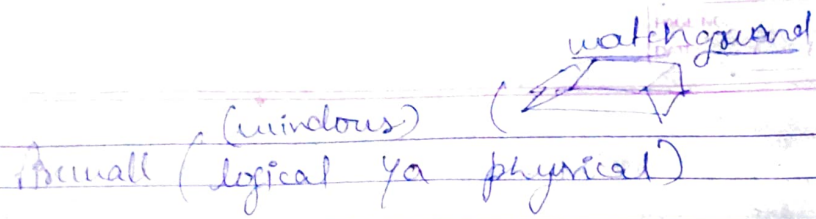 watchguard
(windows) (
firewall ( logical ya physical)